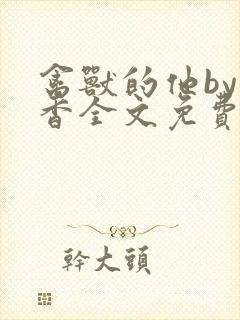 禽獸的他by
香全文免費
幹大頭